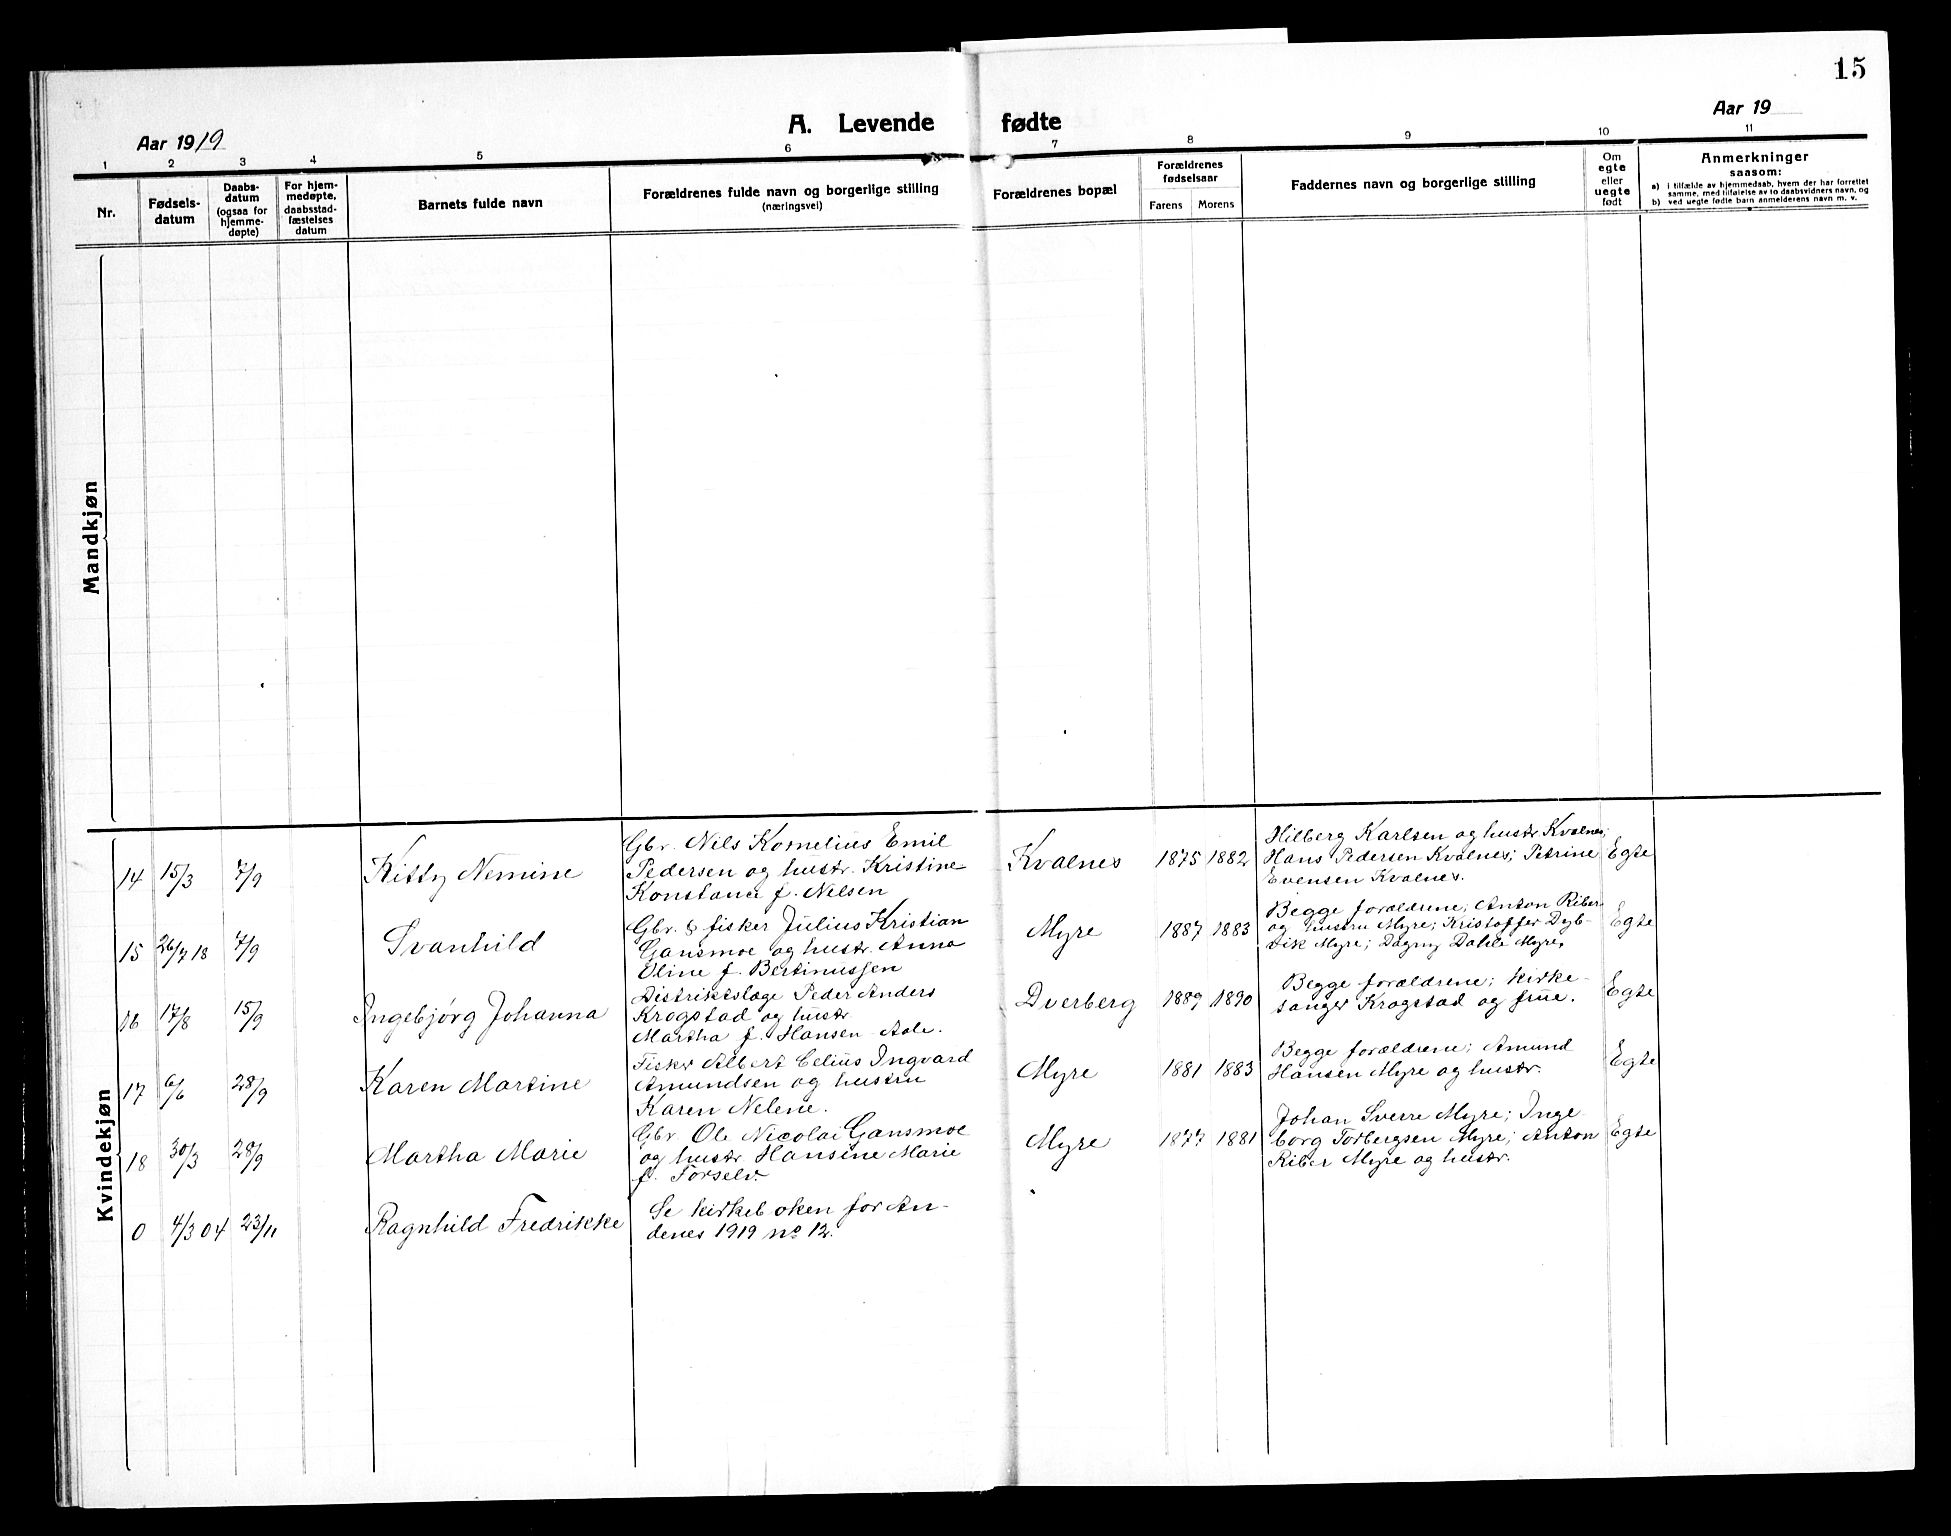 15
Aar 1919
A. Levende fødte
Aar 19
1 2 3 4 5 6 7 8 9 10 11
Nr.
Fødsels-
datum
Daabs-
datum
(ogsaa for
hjemme-
døpte)
For hjem-
medøpte,
daabsstad-
fæstelses
datum
Barnets fulde navn
Forældrenes fulde navn og borgerlige stilling
(næringsvei)
Forældrenes bopæl
Forældrenes
fødselsaar
Farens Morens
Faddernes navn og borgerlige stilling
Om
egte
eller
uegte
født
Anmerkninger
saasom:
a) i tilfælde av hjemmedaab, hvem der har forrettet
samme, med tilføielse av to daabsvidners navn, og
b) ved uegte fødte barn anmelderens navn m. v.
Mandkjøn
Kvindekjøn
14 15/3 7/9 Kitty Nemine
Gbr. Nils Kornelius Emil
Pedersen og hustr. Kristine
Konstance f. Nilsen
Kvalnes 1875 1882
Hilberg Karlsen og hustr Kvalnes;
Hans Pedersen Kvalnes; Petrine
Evensen Kvalnes.
Egte
15 26/7 18 7/9 Svanhild
Gbr. & fisker Julius Kristian
Gansmoe og hustr. Anna
Oline f. Bertinussen
Myre 1887 1883
Begge forældrene; Anton Riber
og hustru Myre; Kristoffer Dyb-
vik Myre; Dagny Dahle Myre,
Egte
16 17/8 15/9 Ingebjørg Johanna
Distriktslæge Peder Anders
Krogstad og hustr
Martha f. Hansen-Aale.
Dverberg 1889 1890
Begge forældrene; Kirke-
sanger Krogstad og frue.
Egte
17 6/6 28/9 Karen Martine
Fisker Albert Celius Ingvard
Amundsen og hustru
Karen Nelene.
Myre 1881 1883
Begge forældrene; Amund
Hansen Myre og hustr.
Egte
18 30/3 28/9 Martha Marie
Gbr Ole Nicolai Gansmoe
og hustr Hansine Marie
f. Forselv.
Myre 1877 1881
Johan Sverre Myre; Inge-
borg Torbergsen Myre; Anton
Riber Myre og hustr.
Egte
0 4/3 04 23/11 Ragnhild Fredrikke
Se kirkeboken for An-
denes 1919 no 12.